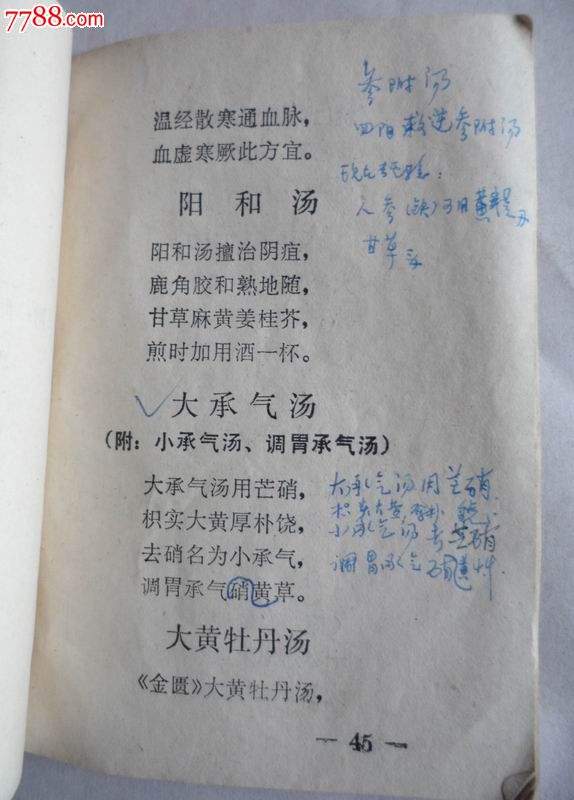 7788.com
温经散寒通血脉，
血虚寒厥此方宜。
阳和汤
阳和汤擅治阴疽，
鹿角胶和熟地随，
甘草麻黄姜桂芥，
煎时加用酒一杯。
大承气汤
（附：小承气汤、调胃承气汤）
大承气汤用芒硝，
枳实大黄厚朴饶，
去硝名为小承气，
调胃承气硝黄草。
大黄牡丹汤
《金匮》大黄牡丹汤，
— 45 —
参附汤
回阳救逆参附汤
人参
甘草
大承气汤用芒硝
枳实大黄厚朴饶
小承气汤去芒硝
调胃承气硝黄草